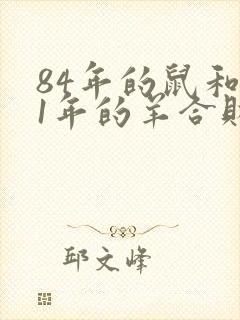 84年的鼠和
1年的羊合
邱文峰